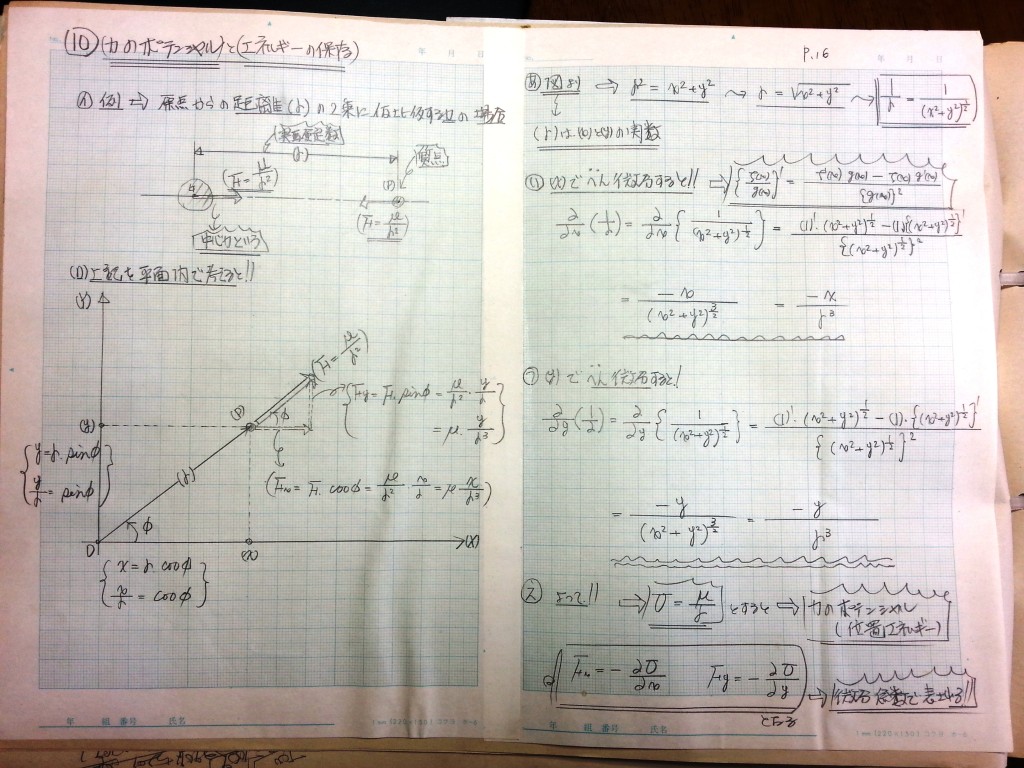 ⑩ (力のポテンシャル)と(エネルギーの保存)
年 月 日
(イ) 例 ⇒ 原点からの距離(r)の2乗に反比例する力の場合
(r)
質点
(F = μ/r²)
(P)
(F = μ/r²)
中心力という
(ロ) 上記を平面内で考えると!!
(y)
(F = μ/r²)
(P)
φ
{Fy = F·sinφ = μ/r² · y/r
= μ· y/r³}
(y)
{y = r·sinφ
y/r = sinφ}
(r)
(Fx = F·cosφ = μ/r² · x/r = μ x/r³)
φ
O
(x)
(X)
{x = r cosφ
x/r = cosφ}
年 組 番号 氏名
P.16
図より ⇒ r² = x²+y² ⤳ r = √x²+y² ⤳ 1/r = 1/(x²+y²)^½
(r)は(x)と(y)の関数
(x)でへん微分すると!! ⇒ {f(x)/g(x)}' = f'(x) g(x) − f(x) g'(x) / {g(x)}²
∂/∂x (1/r) = ∂/∂x {1/(x²+y²)^½} = (1)'·(x²+y²)^½ − (1)·{(x²+y²)^½}' / {(x²+y²)^½}²
= −x/(x²+y²)^3/2 = −x/r³
(y)でへん微分すると!
∂/∂y (1/r) = ∂/∂y {1/(x²+y²)^½} = (1)'·(x²+y²)^½ − (1)·{(x²+y²)^½}' / {(x²+y²)^½}²
= −y/(x²+y²)^3/2 = −y/r³
よって!! ⇒ U = μ/r とすると ⇒ 力のポテンシャル
(位置エネルギー)
Fx = − ∂U/∂x Fy = − ∂U/∂y ⇒ 微分係数で表せる!!
となる
年 組 番号 氏名